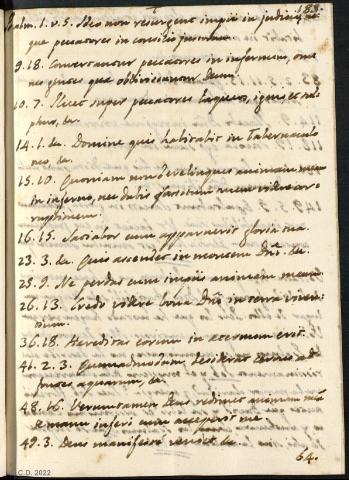 183.
Psalm. 1. v. 5. Ideo non resurgent impii in judicio, ne
que peccatores in concilio justorum.
9. 18. Convertantur peccatores in infernum, om
nes gentes quæ obliviscuntur Deum.
10. 7. Pluet super peccatores laqueos, ignis et sul
phur, &a.
14. 1. &a. Domine quis habitabit in tabernaculo
tuo, &a.
15. 10. Quoniam non derelinques animam meam
in inferno, nec dabis sanctum tuum videre cor
ruptionem.
16. 15. Satiabor cum apparuerit gloria tua.
23. 3. &a. Quis ascendet in montem Dñi. &a.
25. 9. Ne perdas cum impiis animam meam.
26. 13. Credo videre bona Dñi in terra viven
tium.
36. 18. Hereditas eorum in æternum erit.
41. 2. 3. Quemadmodum desiderat cervus ad
fontes aquarum, &a.
48. 16. Verumtamen Deus redimet animam meã
de manu inferi cum acceperit me.
49. 3. Deus manifeste veniet. &a.
64.
C.D. 2022